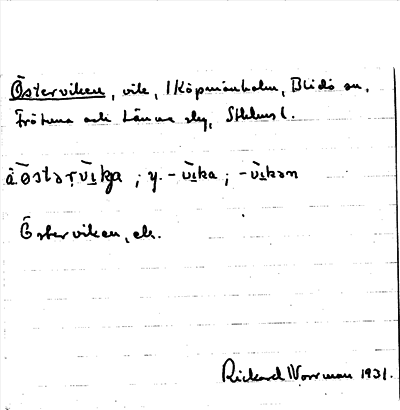 Österviken, vik, Köpmanholm, Blidö sn,
Frötuna och Länna slg, Sthlms l.
å ōstərvīka ; y. -vīka ; -vīkən
Österviken, ek.
Rickard Norrman 1931.